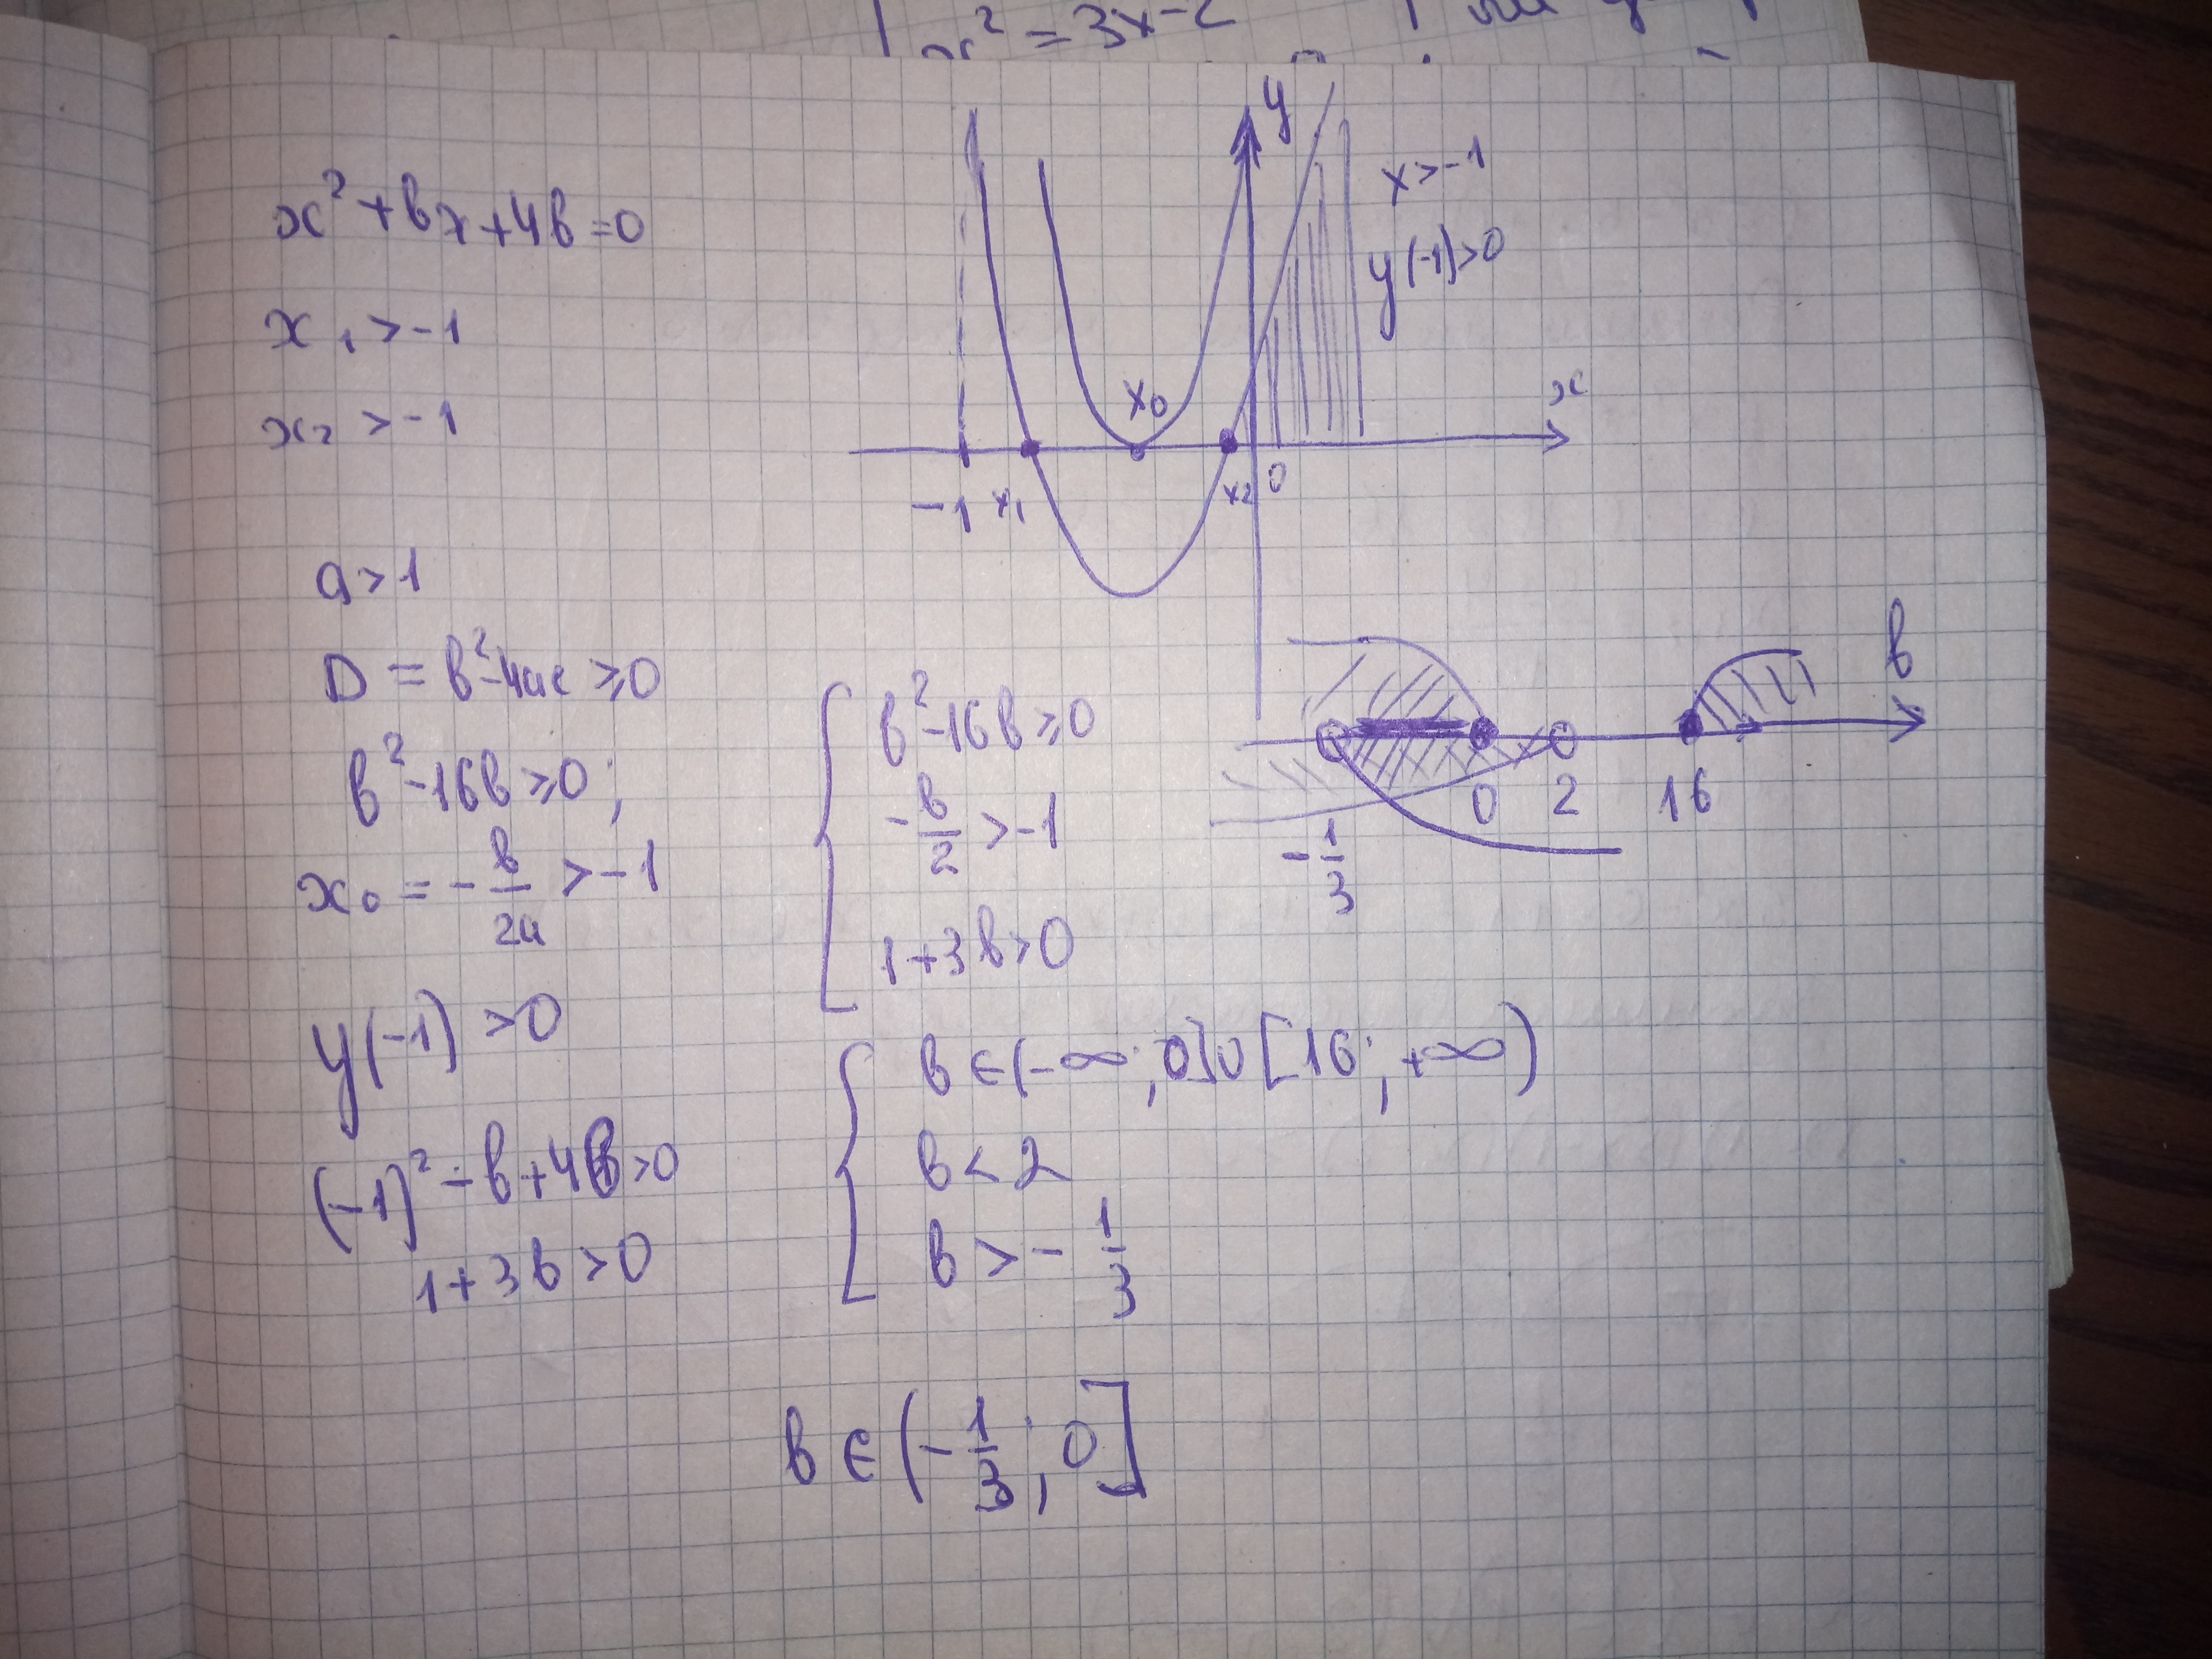 x² = 3x-2
x² + вx + 4в = 0
x₁ > -1
x₂ > -1
y
x > -1
y(-1) > 0
x₀
x
-1 x₁ x₂ 0
a > 1
D = в² - 4ac ⩾ 0
в² - 16в ⩾ 0;
x₀ = - в/2a > -1
y(-1) > 0
(-1)² - в + 4в > 0
1 + 3в > 0
{ в² - 16в ⩾ 0
- в/2 > -1
1 + 3в > 0
в
- 1/3 0 2 16
{ в ∈ (-∞; 0] ∪ [16; +∞)
в < 2
в > - 1/3
в ∈ (- 1/3; 0]